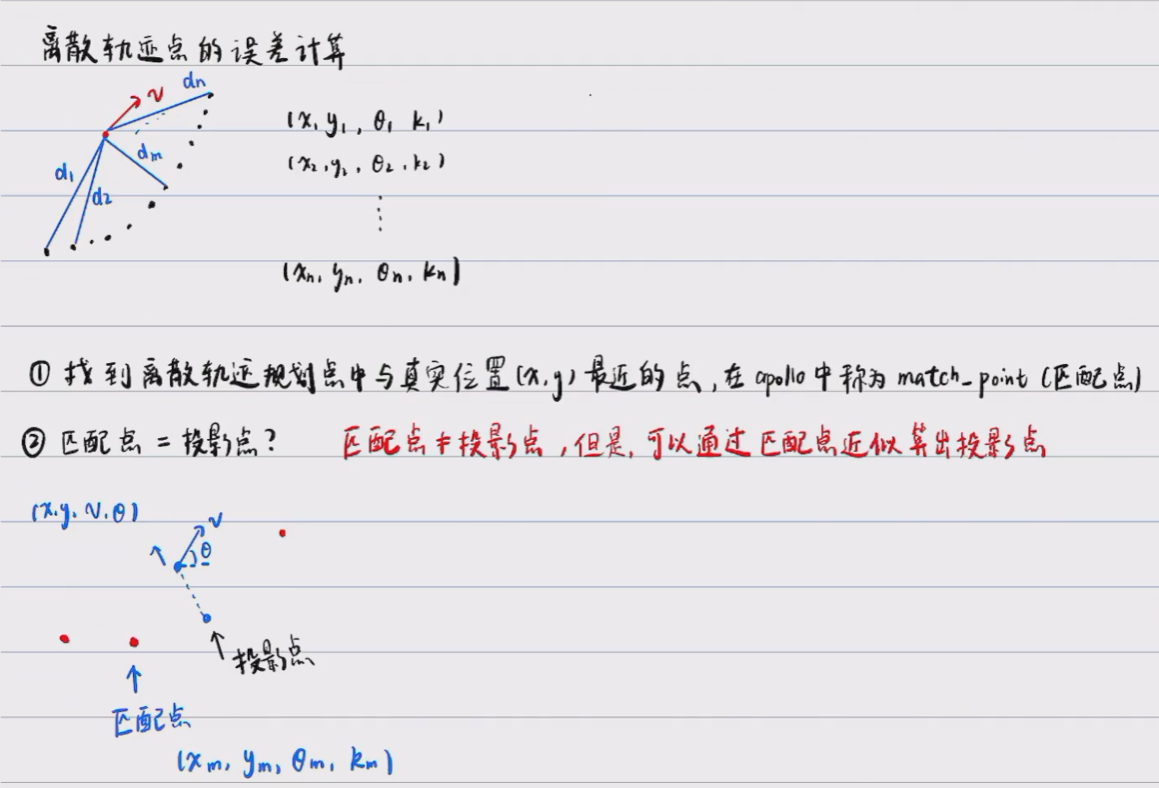 离散轨迹点的误差计算
v
dn
d1
d2
dm
(x1 y1, θ1 k1)
(x2, y2, θ2, k2)
(xn, yn, θn, kn)
① 找到离散轨迹规划点中与真实位置(x,y)最近的点,在apollo中称为match_point(匹配点)
② 匹配点 = 投影点? 匹配点≠投影点,但是,可以通过匹配点近似算出投影点
(x,y, v, θ)
v
θ
投影点
匹配点
(xm, ym, θm, km)